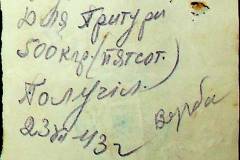 Для Притури
500 кгр (пятсот.
Получил.
23 VII 43 г
Верба